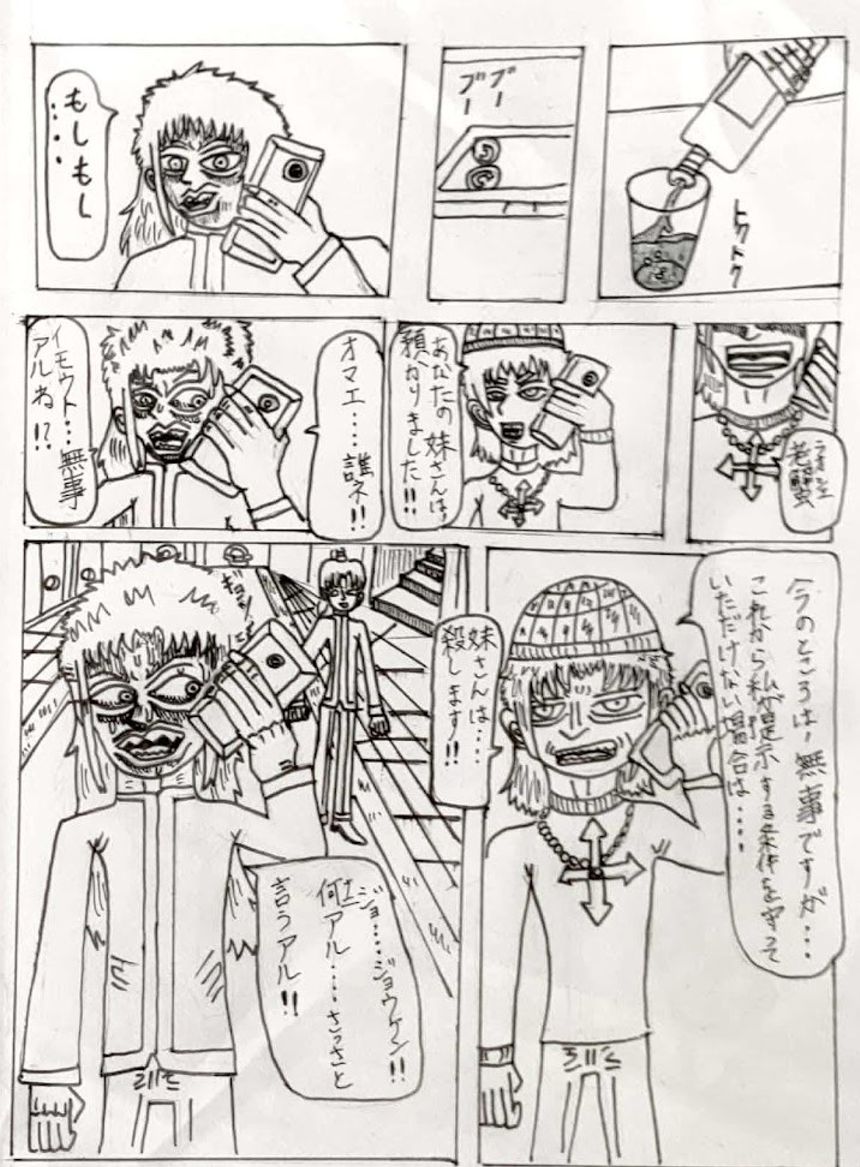 トクトク
ブー
ブー
もしもし
・・・・
あなたの妹さんは、
預かりました!!
オマエ・・・・誰ネ!!
イモウト・・・無事
アルね!?
今のところは、無事ですが・・・
これから私が提示する条件を守って
いただけない場合は・・・・
妹さんは・・・・
殺します!!
ギョッ
ジョ・・・・ジョウケン!!
何アル・・・・さっさと
言うアル!!